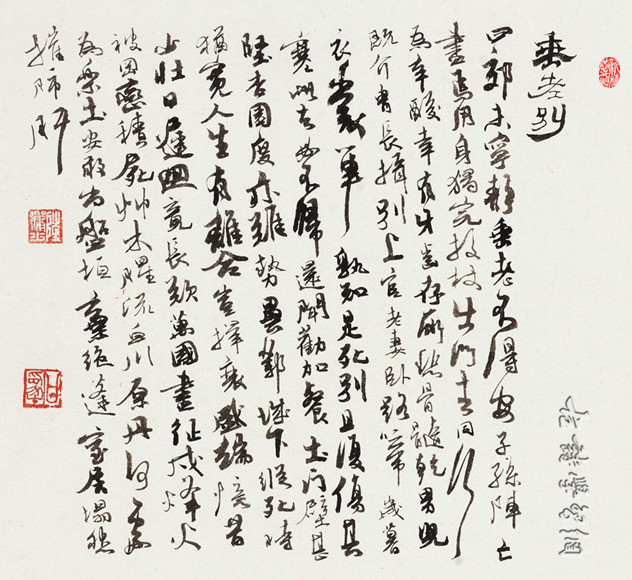 垂老別
四郊未寧靜垂老不得安子孫陣亡
盡焉用身獨完投杖出門去同行
為辛酸幸有牙齒存所悲骨髓乾男兒
既介胄長揖別上官老妻卧路啼歲暮
衣裳單孰知是死別且復傷其
寒此去必不歸還聞勸加餐土門壁甚
堅杏園度亦難勢異鄴城下縱死時
猶寬人生有離合豈擇衰盛端憶昔
少壯日遲迴竟長歎萬國盡征戍烽火
被岡巒積屍艸木腥流血川原丹何鄉
為樂土安敢尚盤桓棄絕蓬室居塌然
摧肺肝